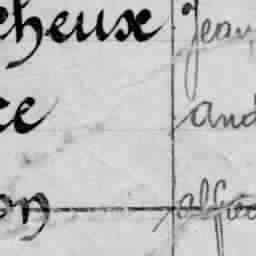 cheux Jean
ce and
on alfred